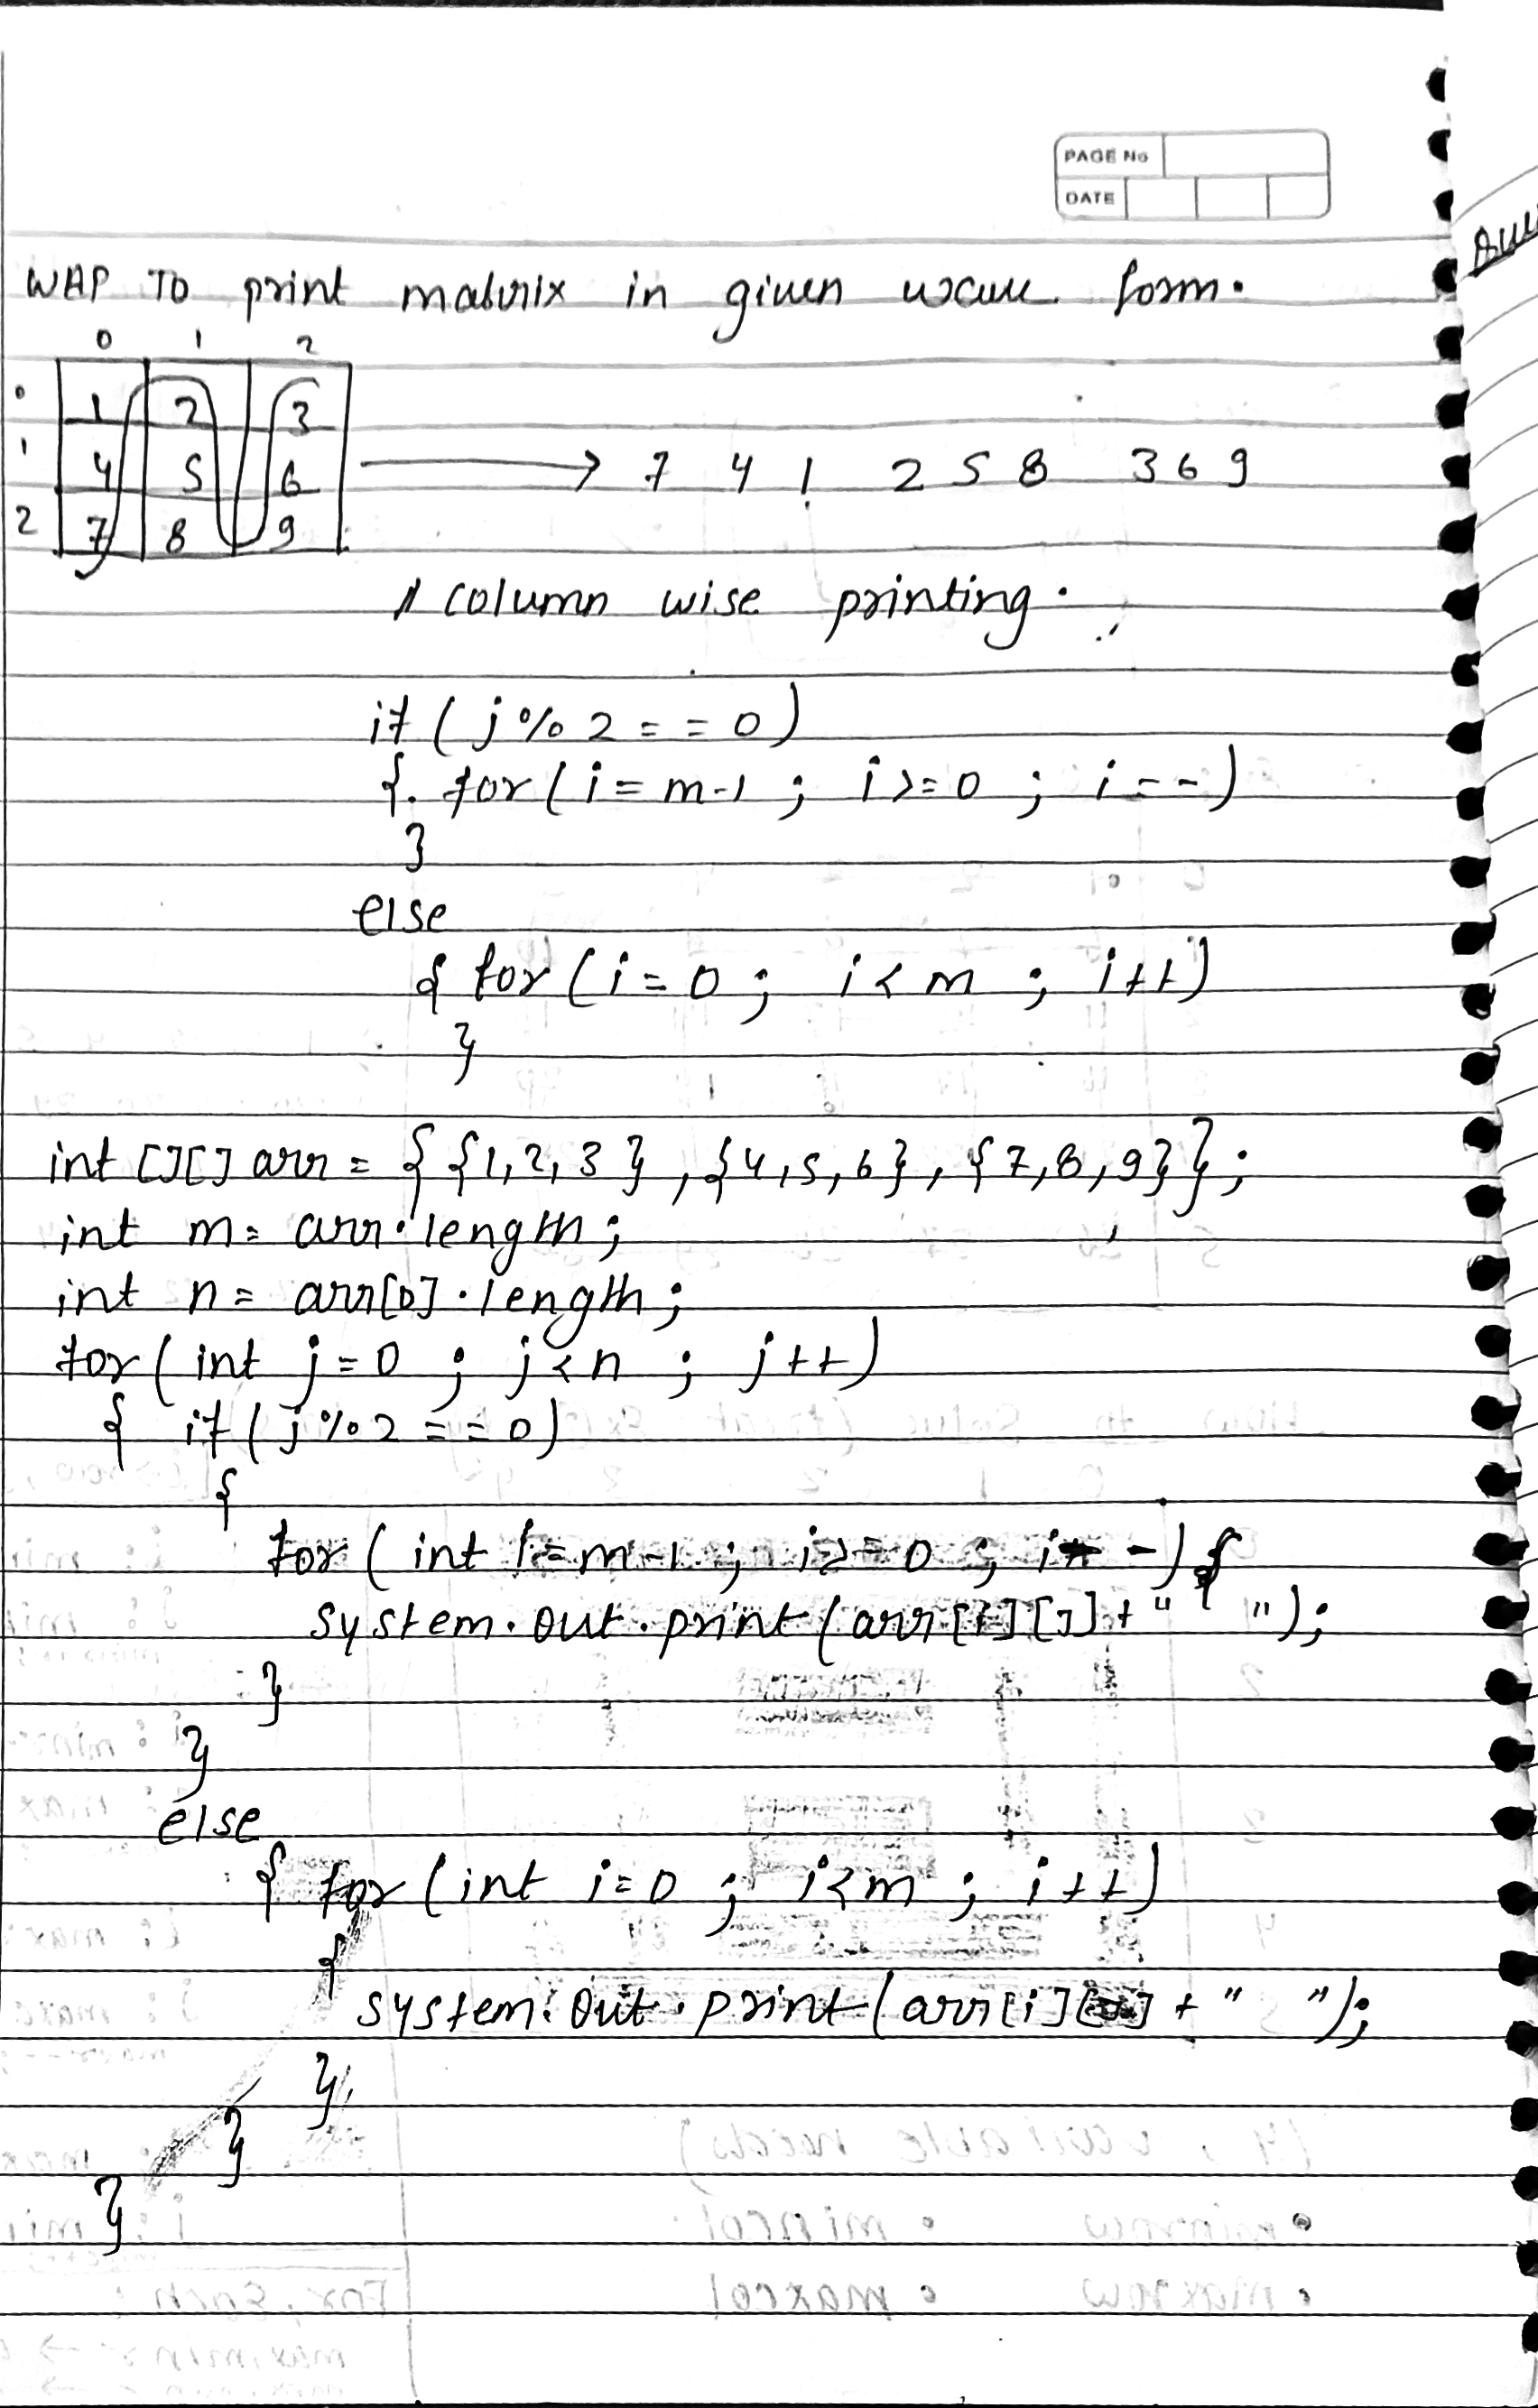 PAGE No
DATE
WAP TO print matrix in given wave form.
0 1 2
0 1 2 3
1 4 5 6 → 7 4 1 2 5 8 3 6 9
2 7 8 9
// column wise printing.
if ( j % 2 = = 0 )
{ for ( i = m-1 ; i >= 0 ; i -- )
}
else
{ for ( i = 0 ; i < m ; i++ )
}
int [][] arr = { {1,2,3} , {4,5,6} , {7,8,9} } ;
int m = arr.length ;
int n = arr[0].length ;
for ( int j = 0 ; j < n ; j++ )
{ if ( j % 2 = = 0 )
{
for ( int i = m-1 ; i >= 0 ; i -- ) {
system.out.print ( arr [i] [j] + " " ) ;
}
}
else
{ for ( int i = 0 ; i < m ; i++ )
{
system.out.print ( arr [i] [j] + " " ) ;
}
}
}